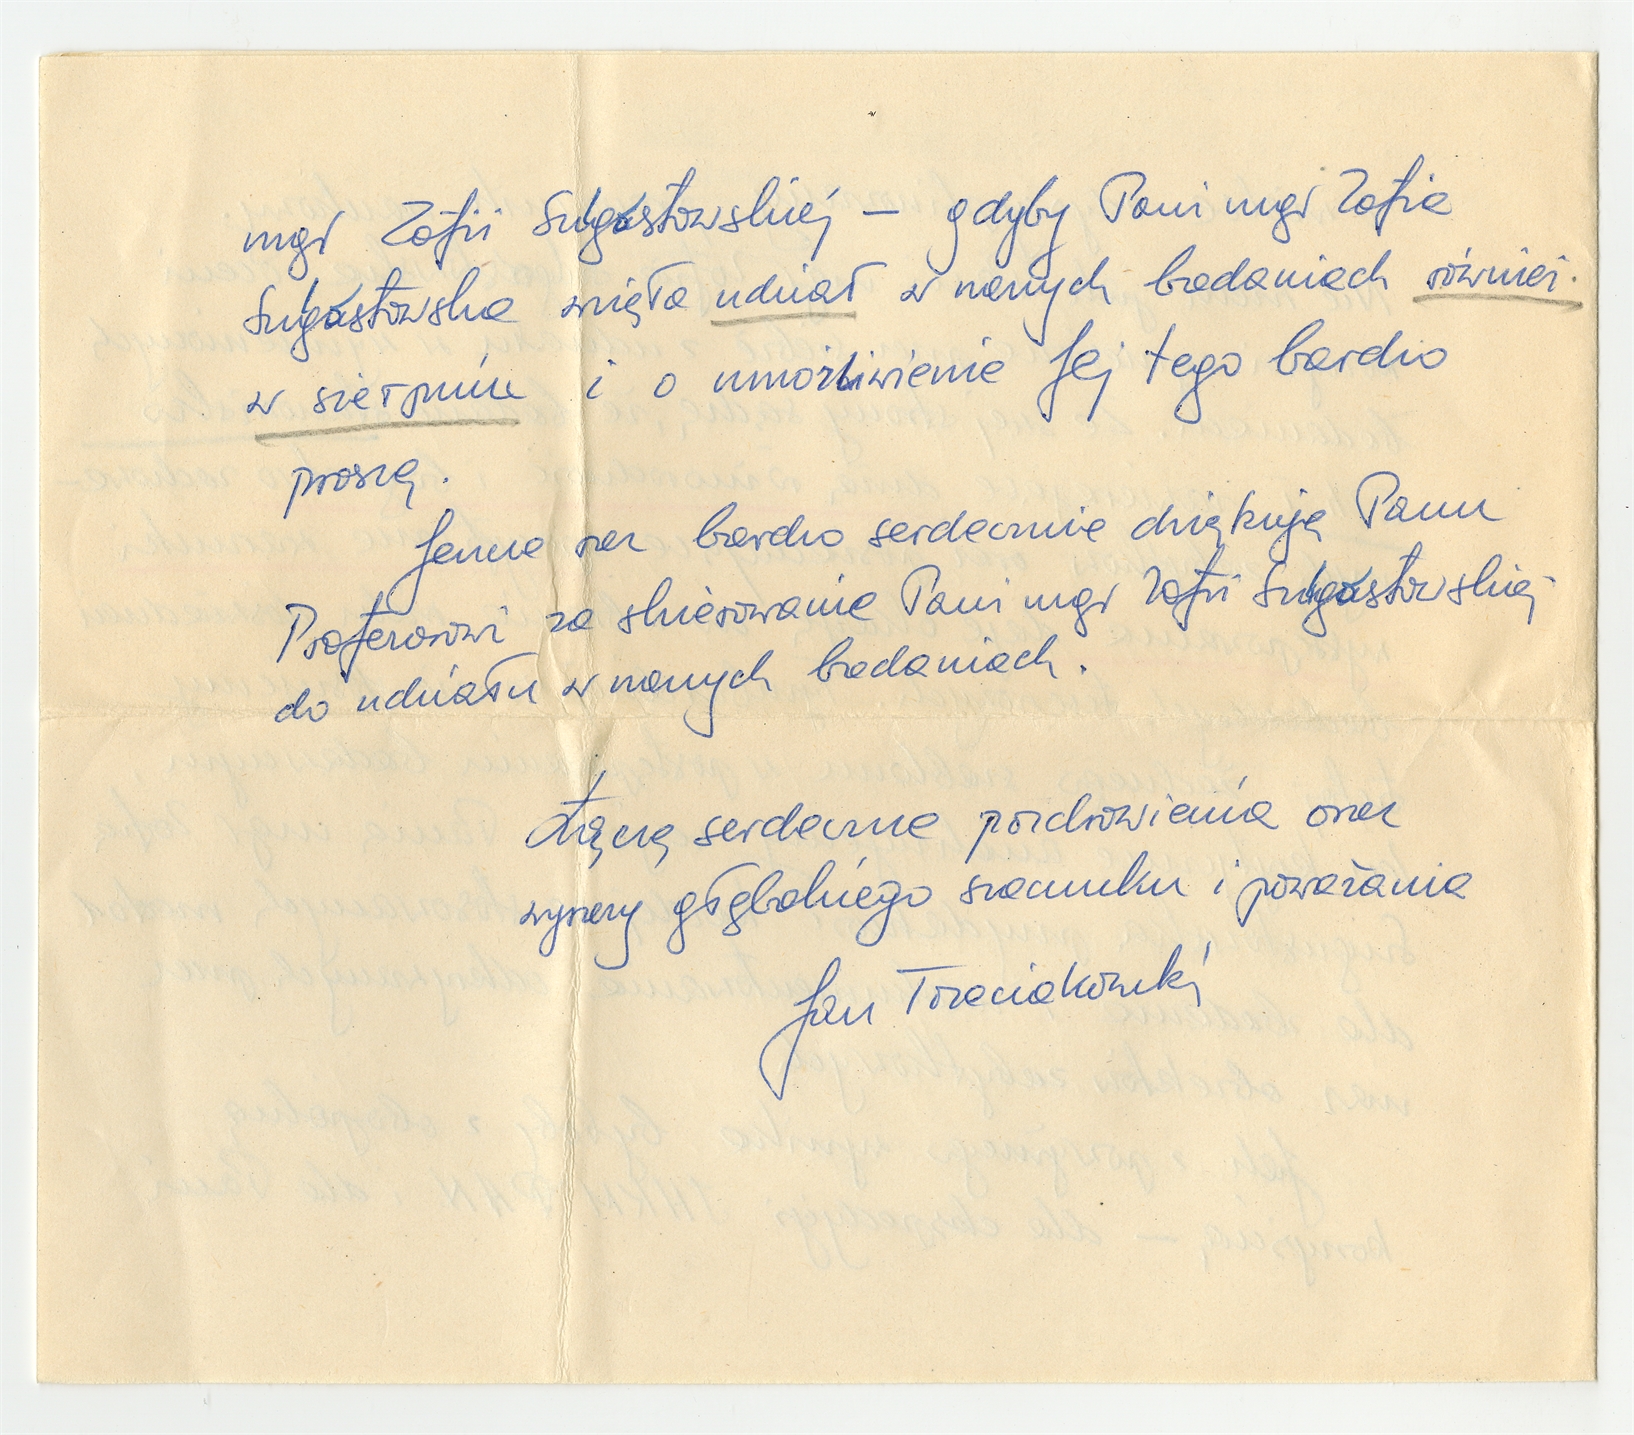 mgr Zofii Sulgostowskiej — gdyby Pani mgr Zofia
Sulgostowska wzięła udział w naszych badaniach również
w sierpniu i o umożliwienie Jej tego bardzo
proszę.
Jeszcze raz bardzo serdecznie dziękuję Panu
Profesorowi za skierowanie Pani mgr Zofii Sulgostowskiej
do udziału w naszych badaniach.
Łączę serdeczne pozdrowienia oraz
wyrazy głębokiego szacunku i poważania
Jan Trzeciakowski